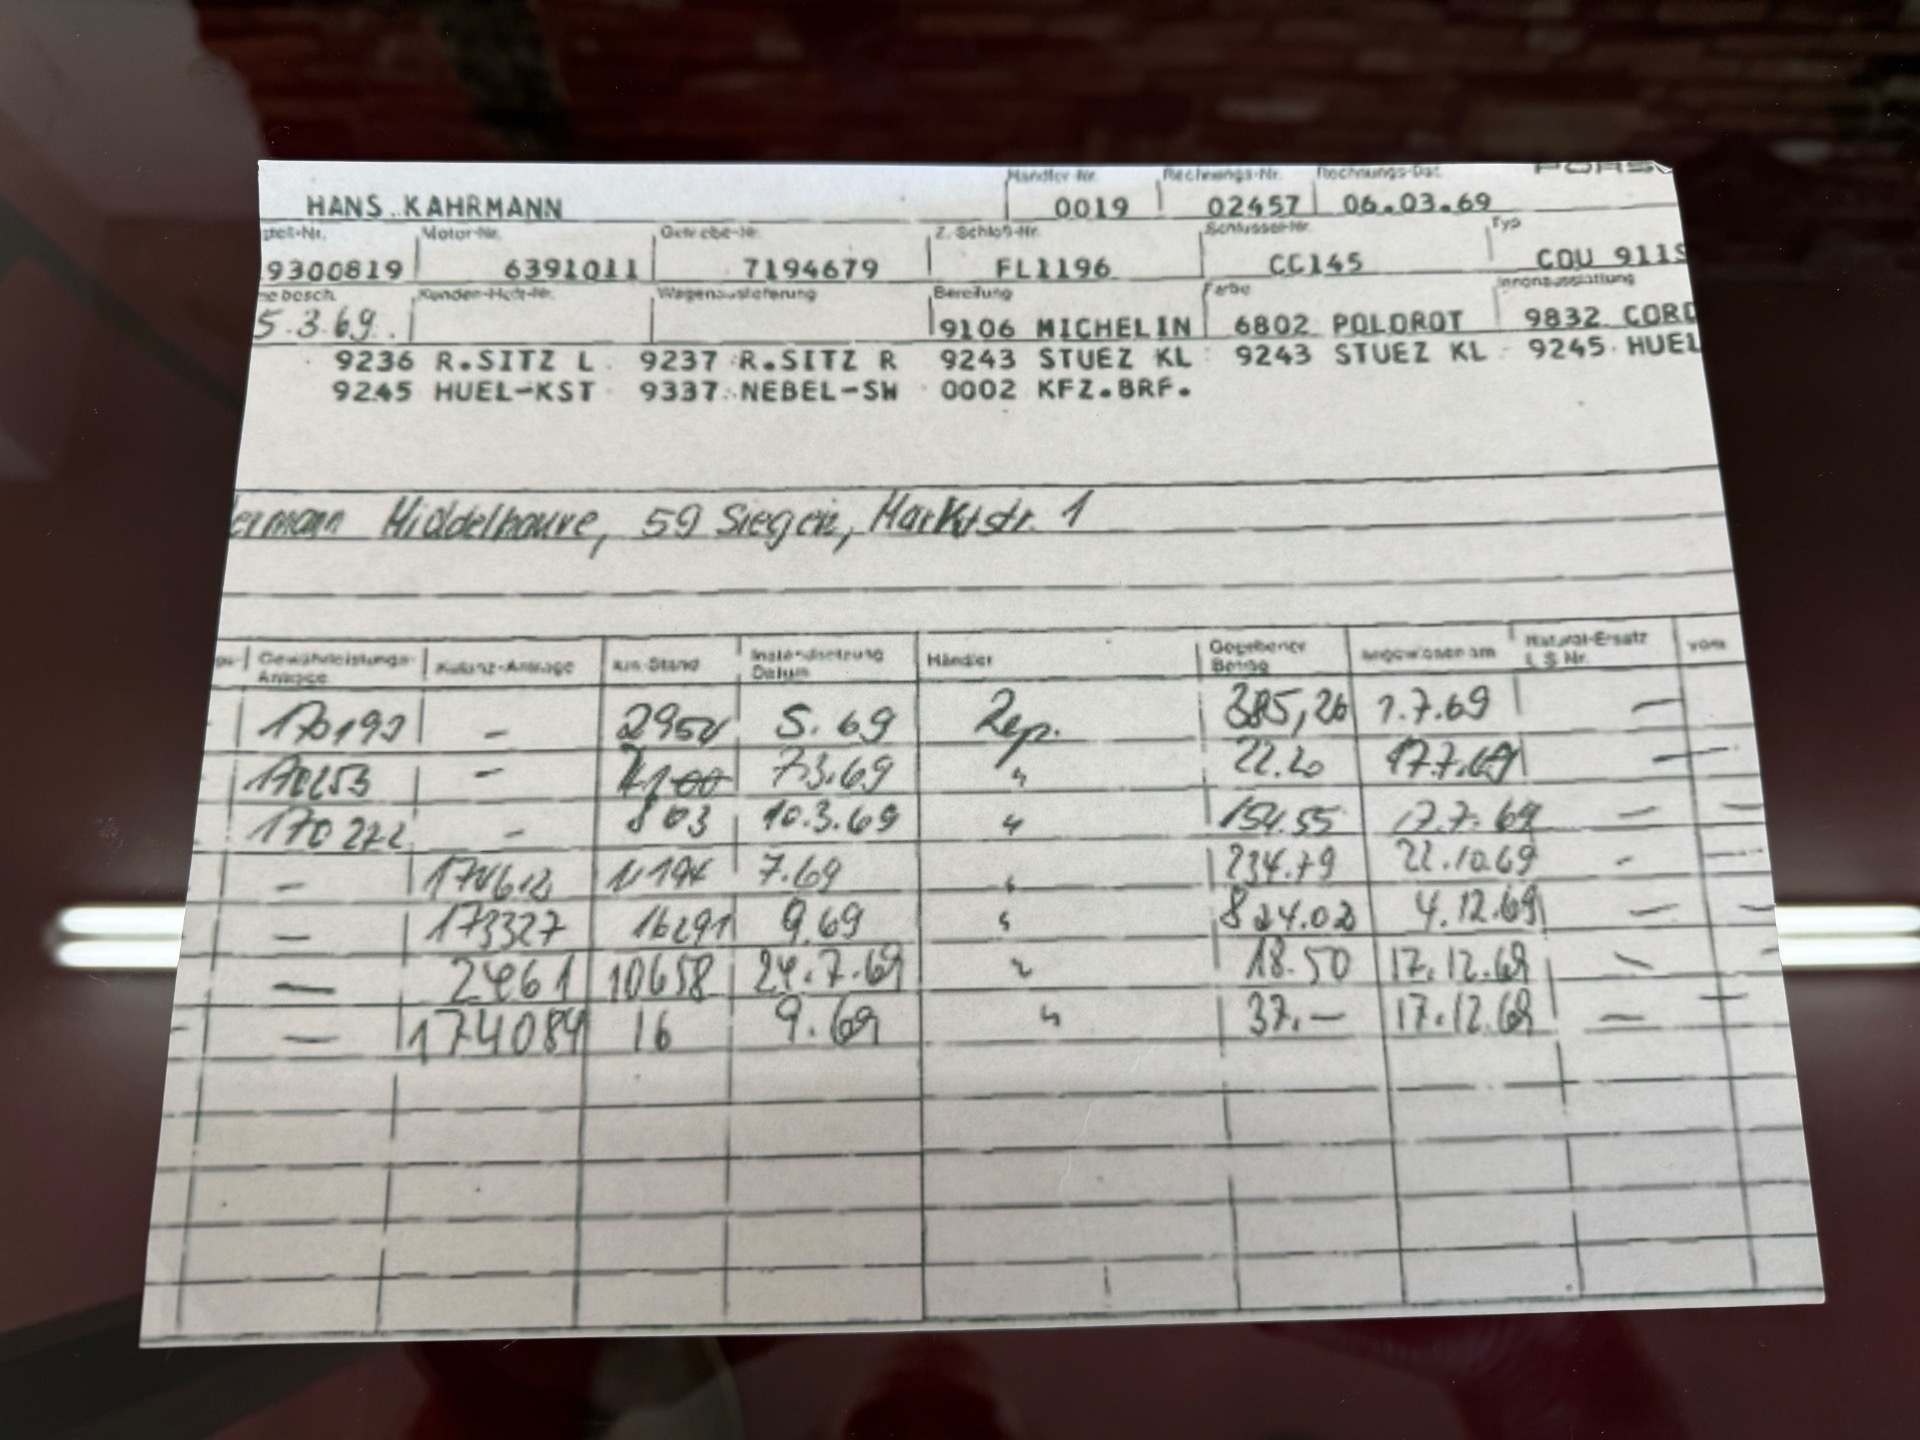 Händler-Nr. Rechnungs-Nr. Rechnungs-Dat.
HANS KAHRMANN 0019 02457 06.03.69
Motor-Nr. Getriebe-Nr. Z. Schloß-Nr. Schlüssel-Nr. Typ
9300819 6391011 7194679 FL1196 CC145 COU 911S
Kunden-Heft-Nr. Wagenauslieferung Bereifung Farbe Innenausstattung
5.3.69. 9106 MICHELIN 6802 POLOROT 9832 CORD
9236 R.SITZ L 9237 R.SITZ R 9243 STUEZ KL 9243 STUEZ KL 9245 HUEL
9245 HUEL-KST 9337 NEBEL-SW 0002 KFZ.BRF.
ermann 59 Siegen, Marktstr. 1
Gewährleistungs-Anträge Kulanz-Anträge km-Stand Instandsetzung Datum Händler Gegebener Betrag angewiesen am Natural-Ersatz L S Nr. vom
170193 - 5.69 Rep. 385,26 1.7.69 -
- 7.3.69 " 22.20 17.7.69 -
170272 - 803 10.3.69 " 154.55 17.7.69 - -
- 7.69 " 234.79 22.10.69 - -
- 173327 16291 9.69 " 824.02 4.12.69 - -
- 2461 10658 24.7.69 " 18.50 17.12.69 -
- - 174084 16 9.69 " 37.- 17.12.69 - -